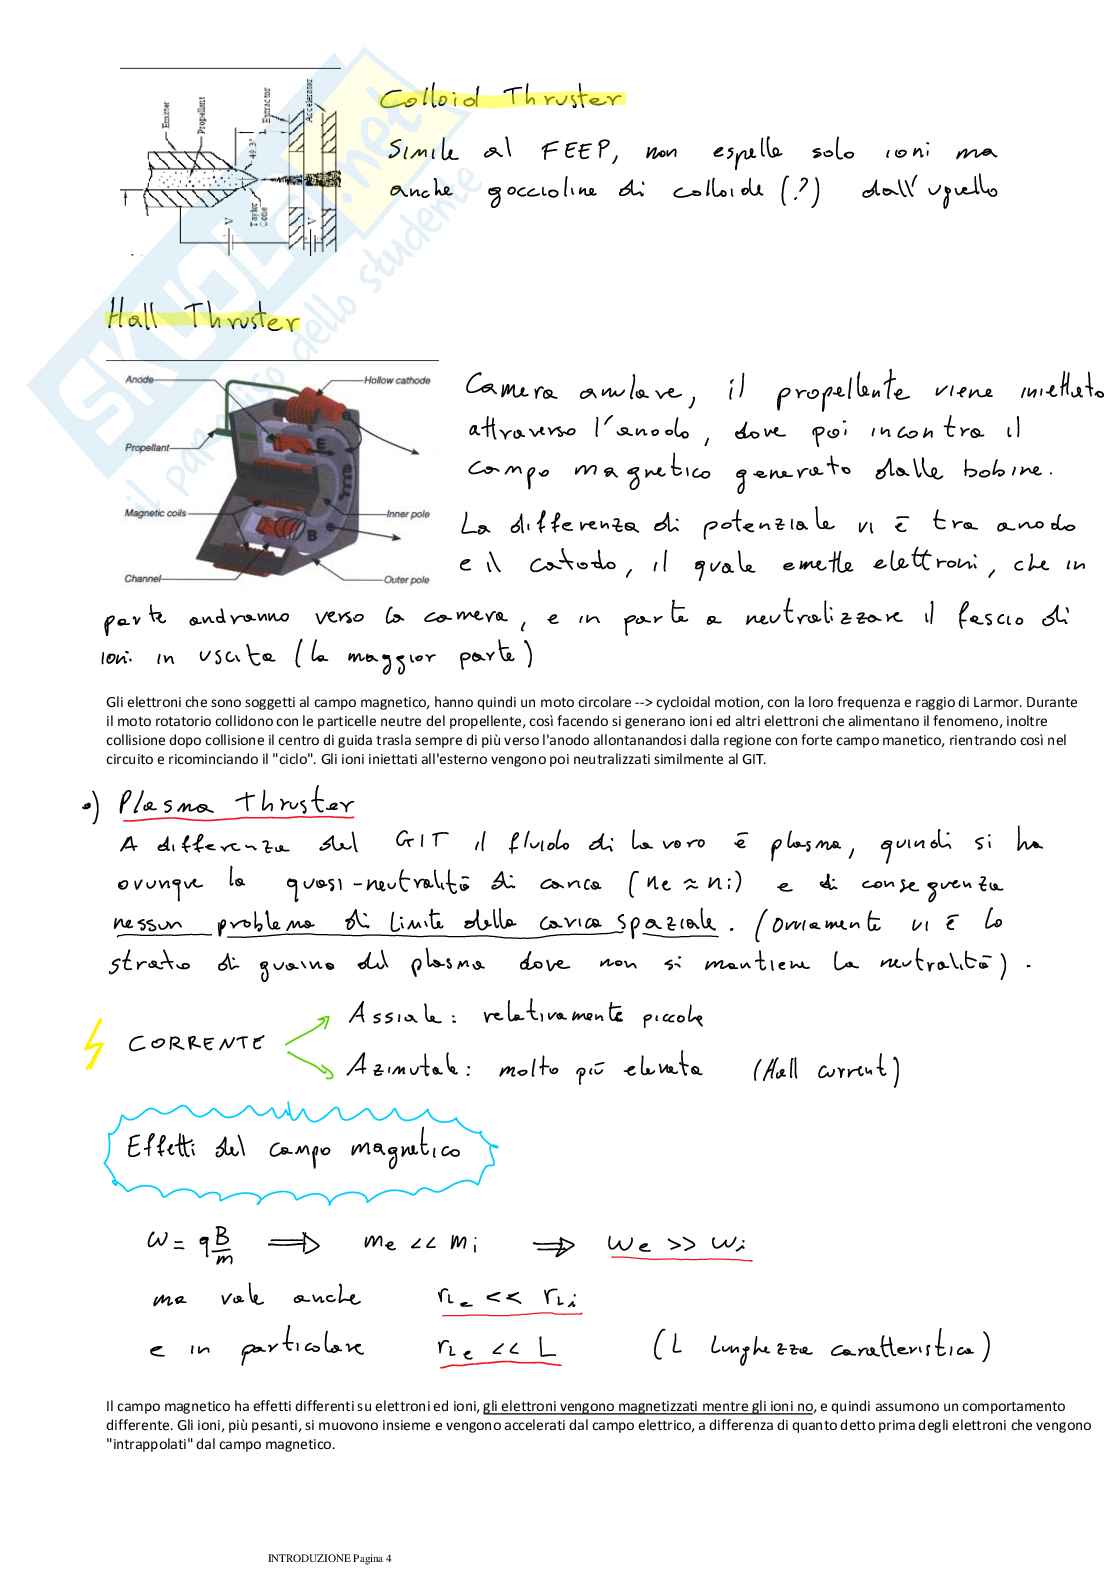 Colloid Thruster
Simile al FEEP, non espelle solo ioni ma
anche goccioline di colloide (?) dall'ugello
Emitter
Propellent
Extractor
Accelerator
49.3°
Taylor
Cone
V
V
Hall Thruster
Anode
Hollow cathode
Propellant
E
Magnetic coils
Inner pole
B
Channel
Outer pole
Camera anulare, il propellente viene iniettato
attraverso l'anodo, dove poi incontra il
campo magnetico generato dalle bobine.
La differenza di potenziale vi è tra anodo
e il catodo, il quale emette elettroni, che in
parte andranno verso la camera, e in parte a neutralizzare il fascio di
ioni in uscita (la maggior parte)
Gli elettroni che sono soggetti al campo magnetico, hanno quindi un moto circolare --> cycloidal motion, con la loro frequenza e raggio di Larmor. Durante
il moto rotatorio collidono con le particelle neutre del propellente, così facendo si generano ioni ed altri elettroni che alimentano il fenomeno, inoltre
collisione dopo collisione il centro di guida trasla sempre di più verso l'anodo allontanandosi dalla regione con forte campo manetico, rientrando così nel
circuito e ricominciando il "ciclo". Gli ioni iniettati all'esterno vengono poi neutralizzati similmente al GIT.
•) Plasma Thruster
A differenza del GIT il fluido di lavoro è plasma, quindi si ha
ovunque la quasi-neutralità di carica (ne ≈ ni) e di conseguenza
nessun problema di limite della carica spaziale. (Ovviamente vi è lo
strato di guaina del plasma dove non si mantiene la neutralità).
CORRENTE
Assiale: relativamente piccola
Azimutale: molto più elevata (Hall current)
Effetti del campo magnetico
ω = q B/m ⟹ me << mi ⟹ ωe >> ωi
ma vale anche rLe << rLi
e in particolare rLe << L (L lunghezza caratteristica)
Il campo magnetico ha effetti differenti su elettroni ed ioni, gli elettroni vengono magnetizzati mentre gli ioni no, e quindi assumono un comportamento
differente. Gli ioni, più pesanti, si muovono insieme e vengono accelerati dal campo elettrico, a differenza di quanto detto prima degli elettroni che vengono
"intrappolati" dal campo magnetico.
INTRODUZIONE Pagina 4
SKUOLA.net
il paradiso dello studente